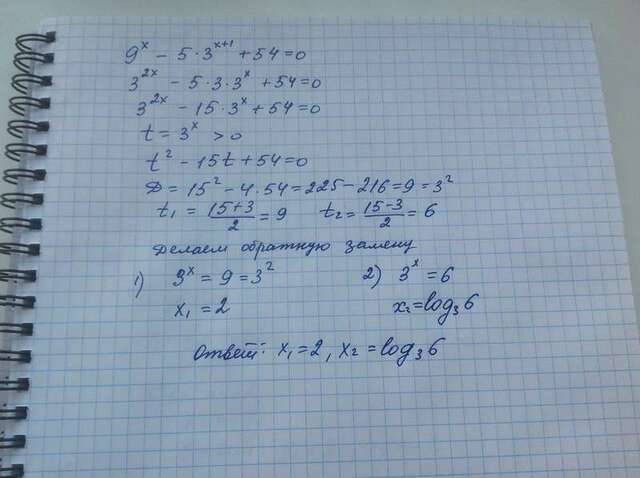 9^x − 5·3^(x+1) + 54 = 0
3^(2x) − 5·3·3^x + 54 = 0
3^(2x) − 15·3^x + 54 = 0
t = 3^x > 0
t² − 15t + 54 = 0
D = 15² − 4·54 = 225 − 216 = 9 = 3²
t₁ = (15+3)/2 = 9 t₂ = (15−3)/2 = 6
Делаем обратную замену
1) 3^x = 9 = 3² 2) 3^x = 6
x₁ = 2 x₂ = log₃6
Ответ: x₁ = 2, x₂ = log₃6